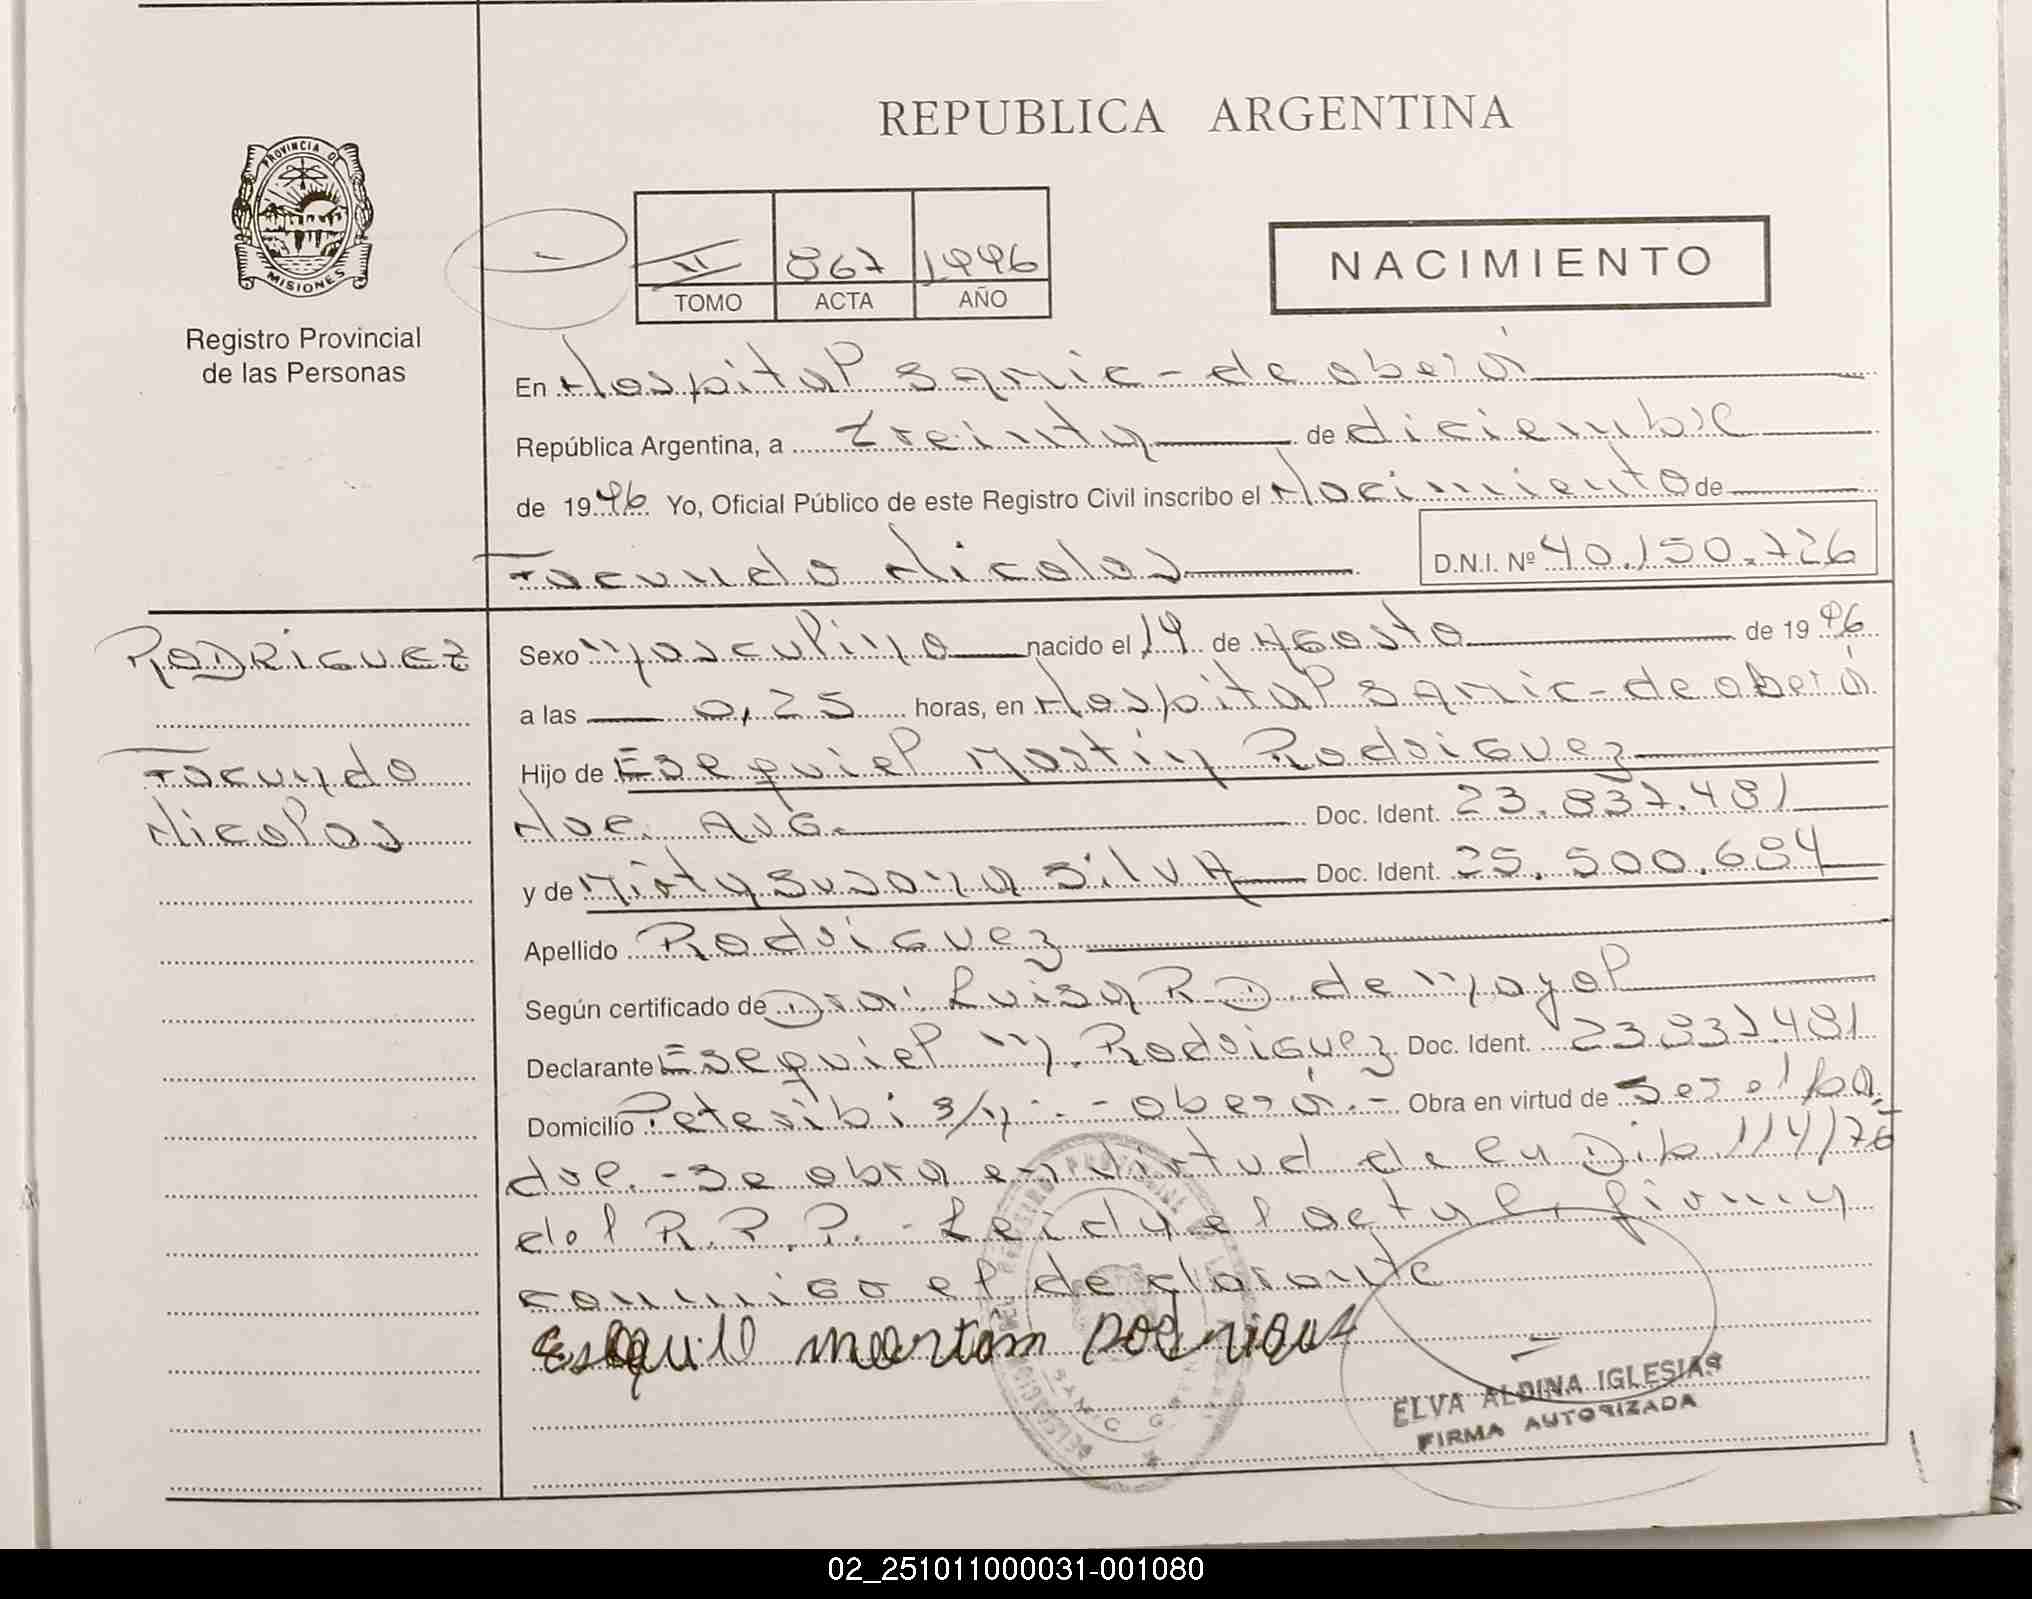 REPUBLICA ARGENTINA
PROVINCIA D
MISIONES
Registro Provincial
de las Personas
II 867 1996
TOMO ACTA AÑO
NACIMIENTO
En Hospital Samic - de oberá
República Argentina, a treinta de diciembre
de 1996 Yo, Oficial Público de este Registro Civil inscribo el Nacimiento de
Facundo Nicolas D.N.I. Nº 40.150.726
RODRIGUEZ
Facundo
Nicolas
Sexo Masculino nacido el 19 de Agosto de 1996
a las 0,25 horas, en Hospital Samic - de oberá
Hijo de Esequiel Martin Rodriguez
Nac. Arg. Doc. Ident. 23.837.481
y de Mirta Susana Silva Doc. Ident. 25.500.684
Apellido Rodriguez
Según certificado de Dra. Luisa R D. de Mayol
Declarante Esequiel M. Rodriguez Doc. Ident. 23.837.481
Domicilio Peteribi s/n - oberá.- Obra en virtud de Ser el pa
dre. - Se obra en virtud de la Dip. 114/76
del R.P.P. - Leida el acta, firma
conmigo el declarante
Esequiel martin Rodriguez
ELVA ALDINA IGLESIAS
FIRMA AUTORIZADA
02_251011000031-001080